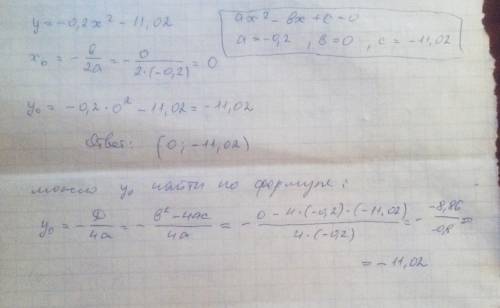 y = -0,2x² - 11,02
ax² - вx + c = 0
a = -0,2 , в = 0 , c = -11,02
x₀ = - в/2a = - 0/2·(-0,2) = 0
y₀ = -0,2 · 0² - 11,02 = -11,02
Ответ: (0; -11,02)
можно y₀ найти по формуле:
y₀ = - D/4a = - в² - 4ac/4a = - 0 - 4·(-0,2)·(-11,02)/4·(-0,2) = - -8,86/-0,8 =
= -11,02